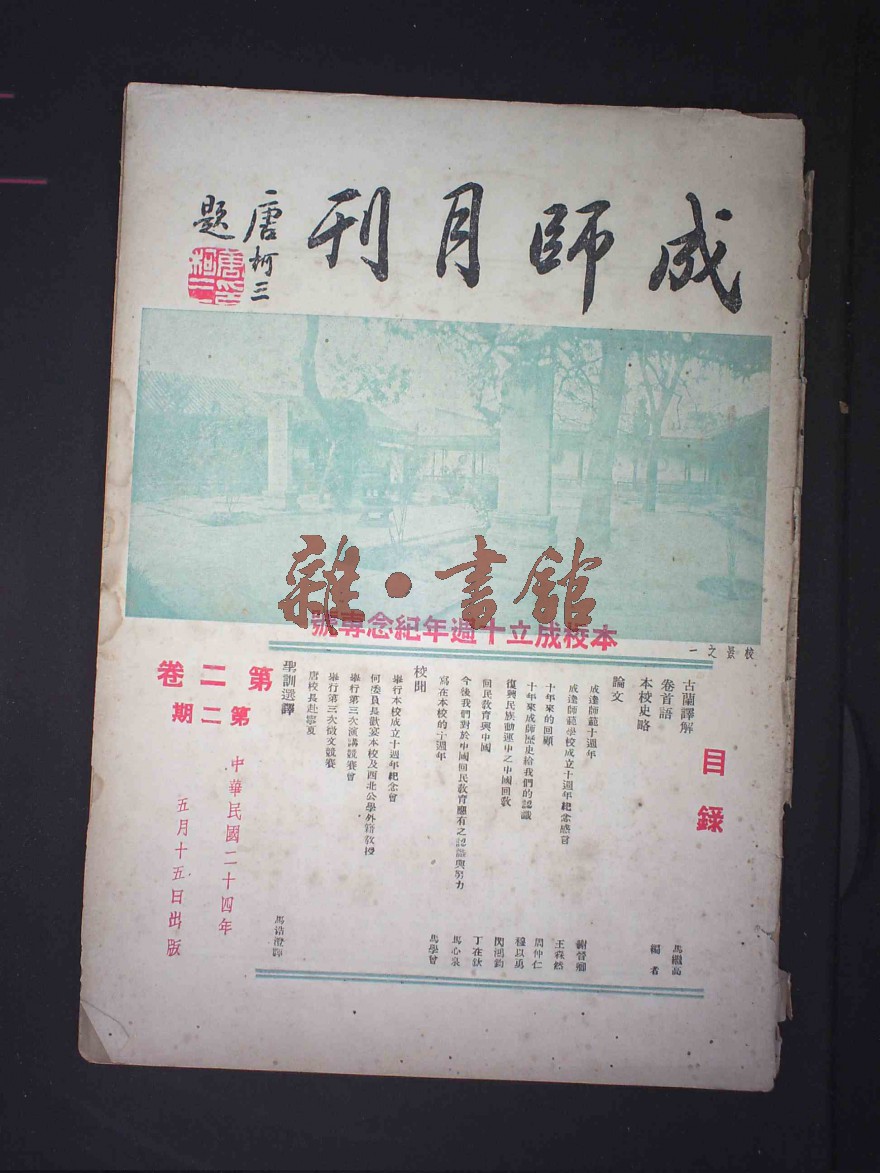 成師月刊
唐柯三
題
唐柯三印
雜·書館
本校成立十週年紀念專號
校景之一
目錄
古蘭譯解 馬繼高
卷首語 編者
本校史略
論文
成達師範十週年
成達師範學校成立十週年紀念感言 謝晉卿
十年來的回顧 王森然
十年來成師歷史給我們的認識 周仲仁
復興民族動運中之中國回教 穆以勇
回民教育與中國 閃鴻鈞
今後我們對於中國回民教育應有之認識與努力 丁在欽
寫在本校的十週年 馬心泉
校聞 馬學曾
舉行本校成立十週年紀念會
何委員長歡宴本校及西北公學外籍教授
舉行第三次演講競賽會
舉行第三次徵文競賽
唐校長赴寧夏
聖訓選譯 馬浩澄譯
第二卷
第二期
中華民國二十四年
五月十五日出版